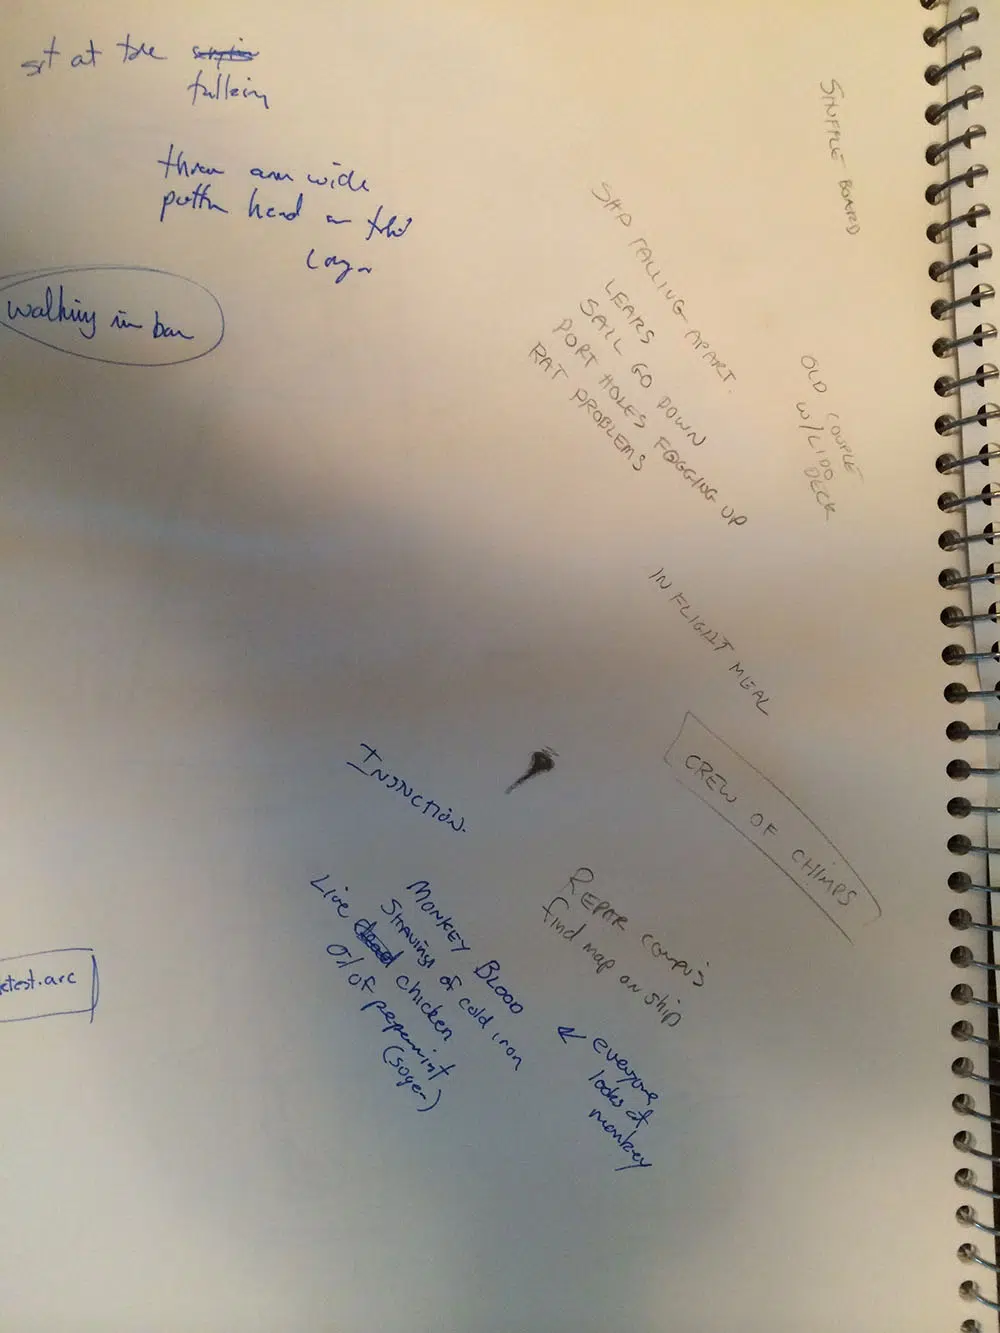 sit at the
talking
wide
head
walking in bar
SHUFFLE BOARD
SHIP FALLING APART.
LEAKS
SAIL GO DOWN
PORT HOLES FOGGING UP
RAT PROBLEMS
OLD COUPLE
W/LIDO
DECK
IN FLIGHT MEAL
CREW OF CHIMPS
Repair compus
find map on ship
MONKEY BLOOD
Shavings of cold iron
Live dead chicken
Oil of pepermint
everyone
looks at
monkey
etest.arc